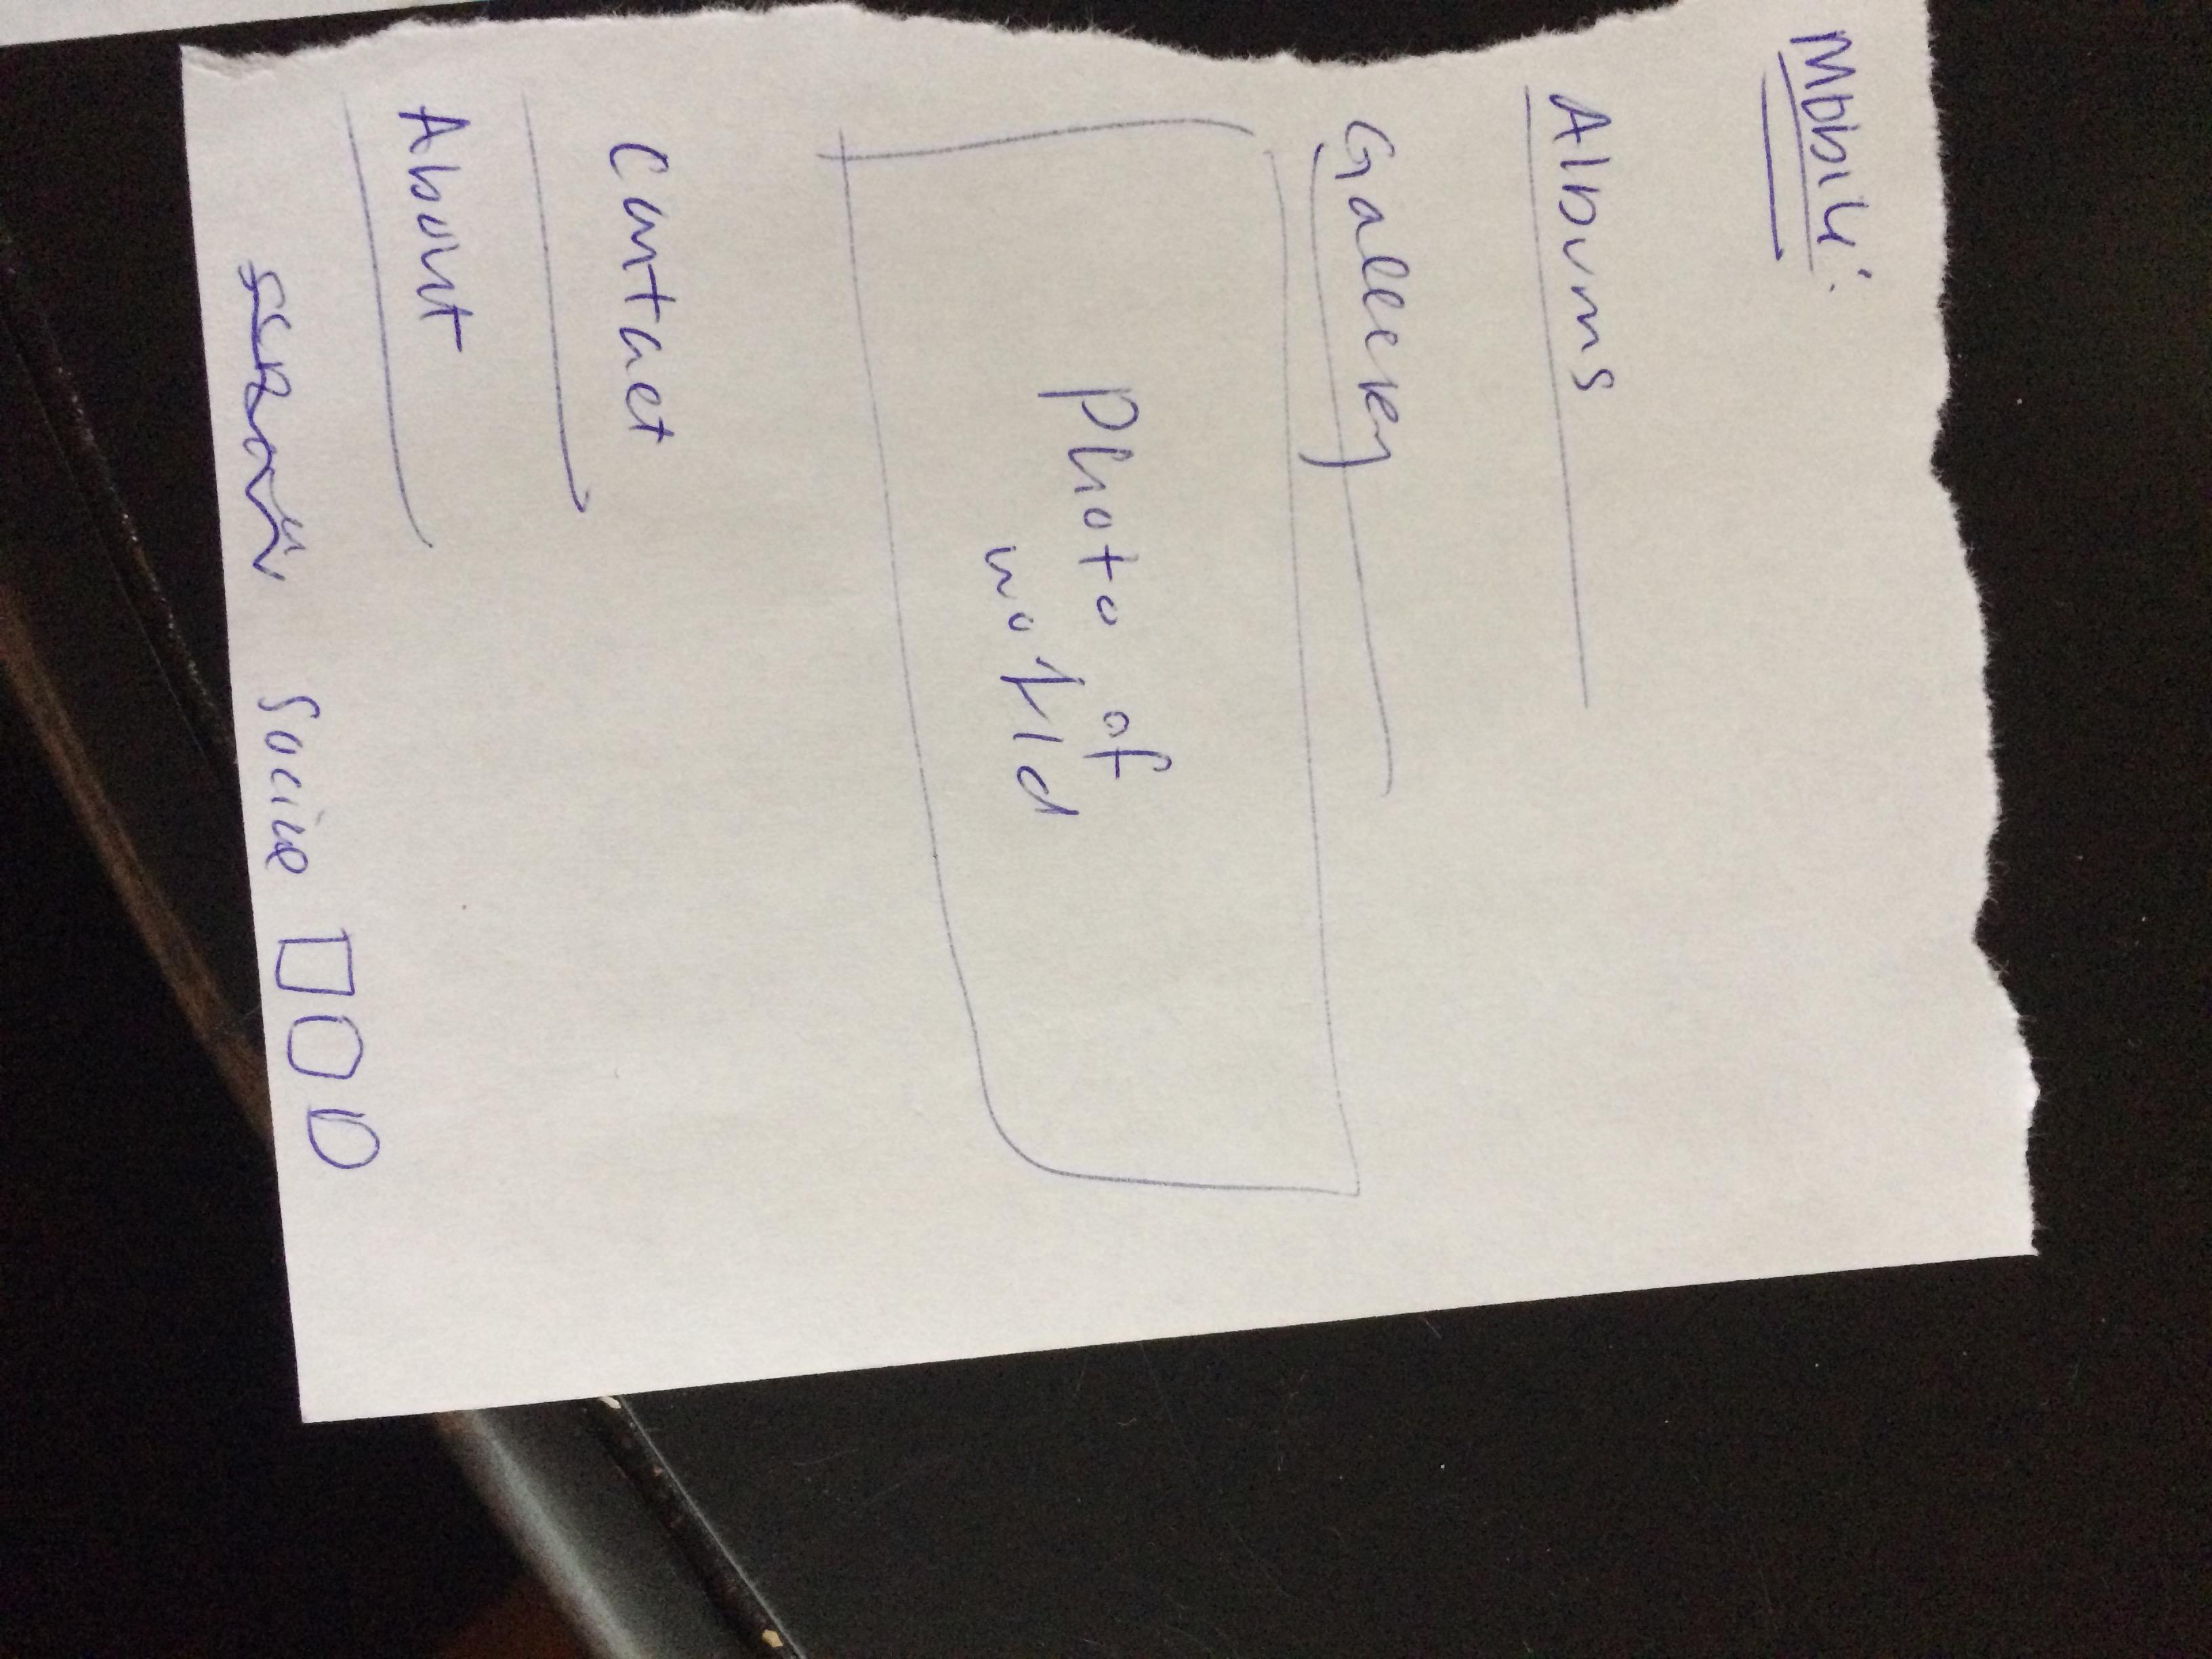 Mobile:
Albums
Gallery
Photo of
world
Contact
About
Social